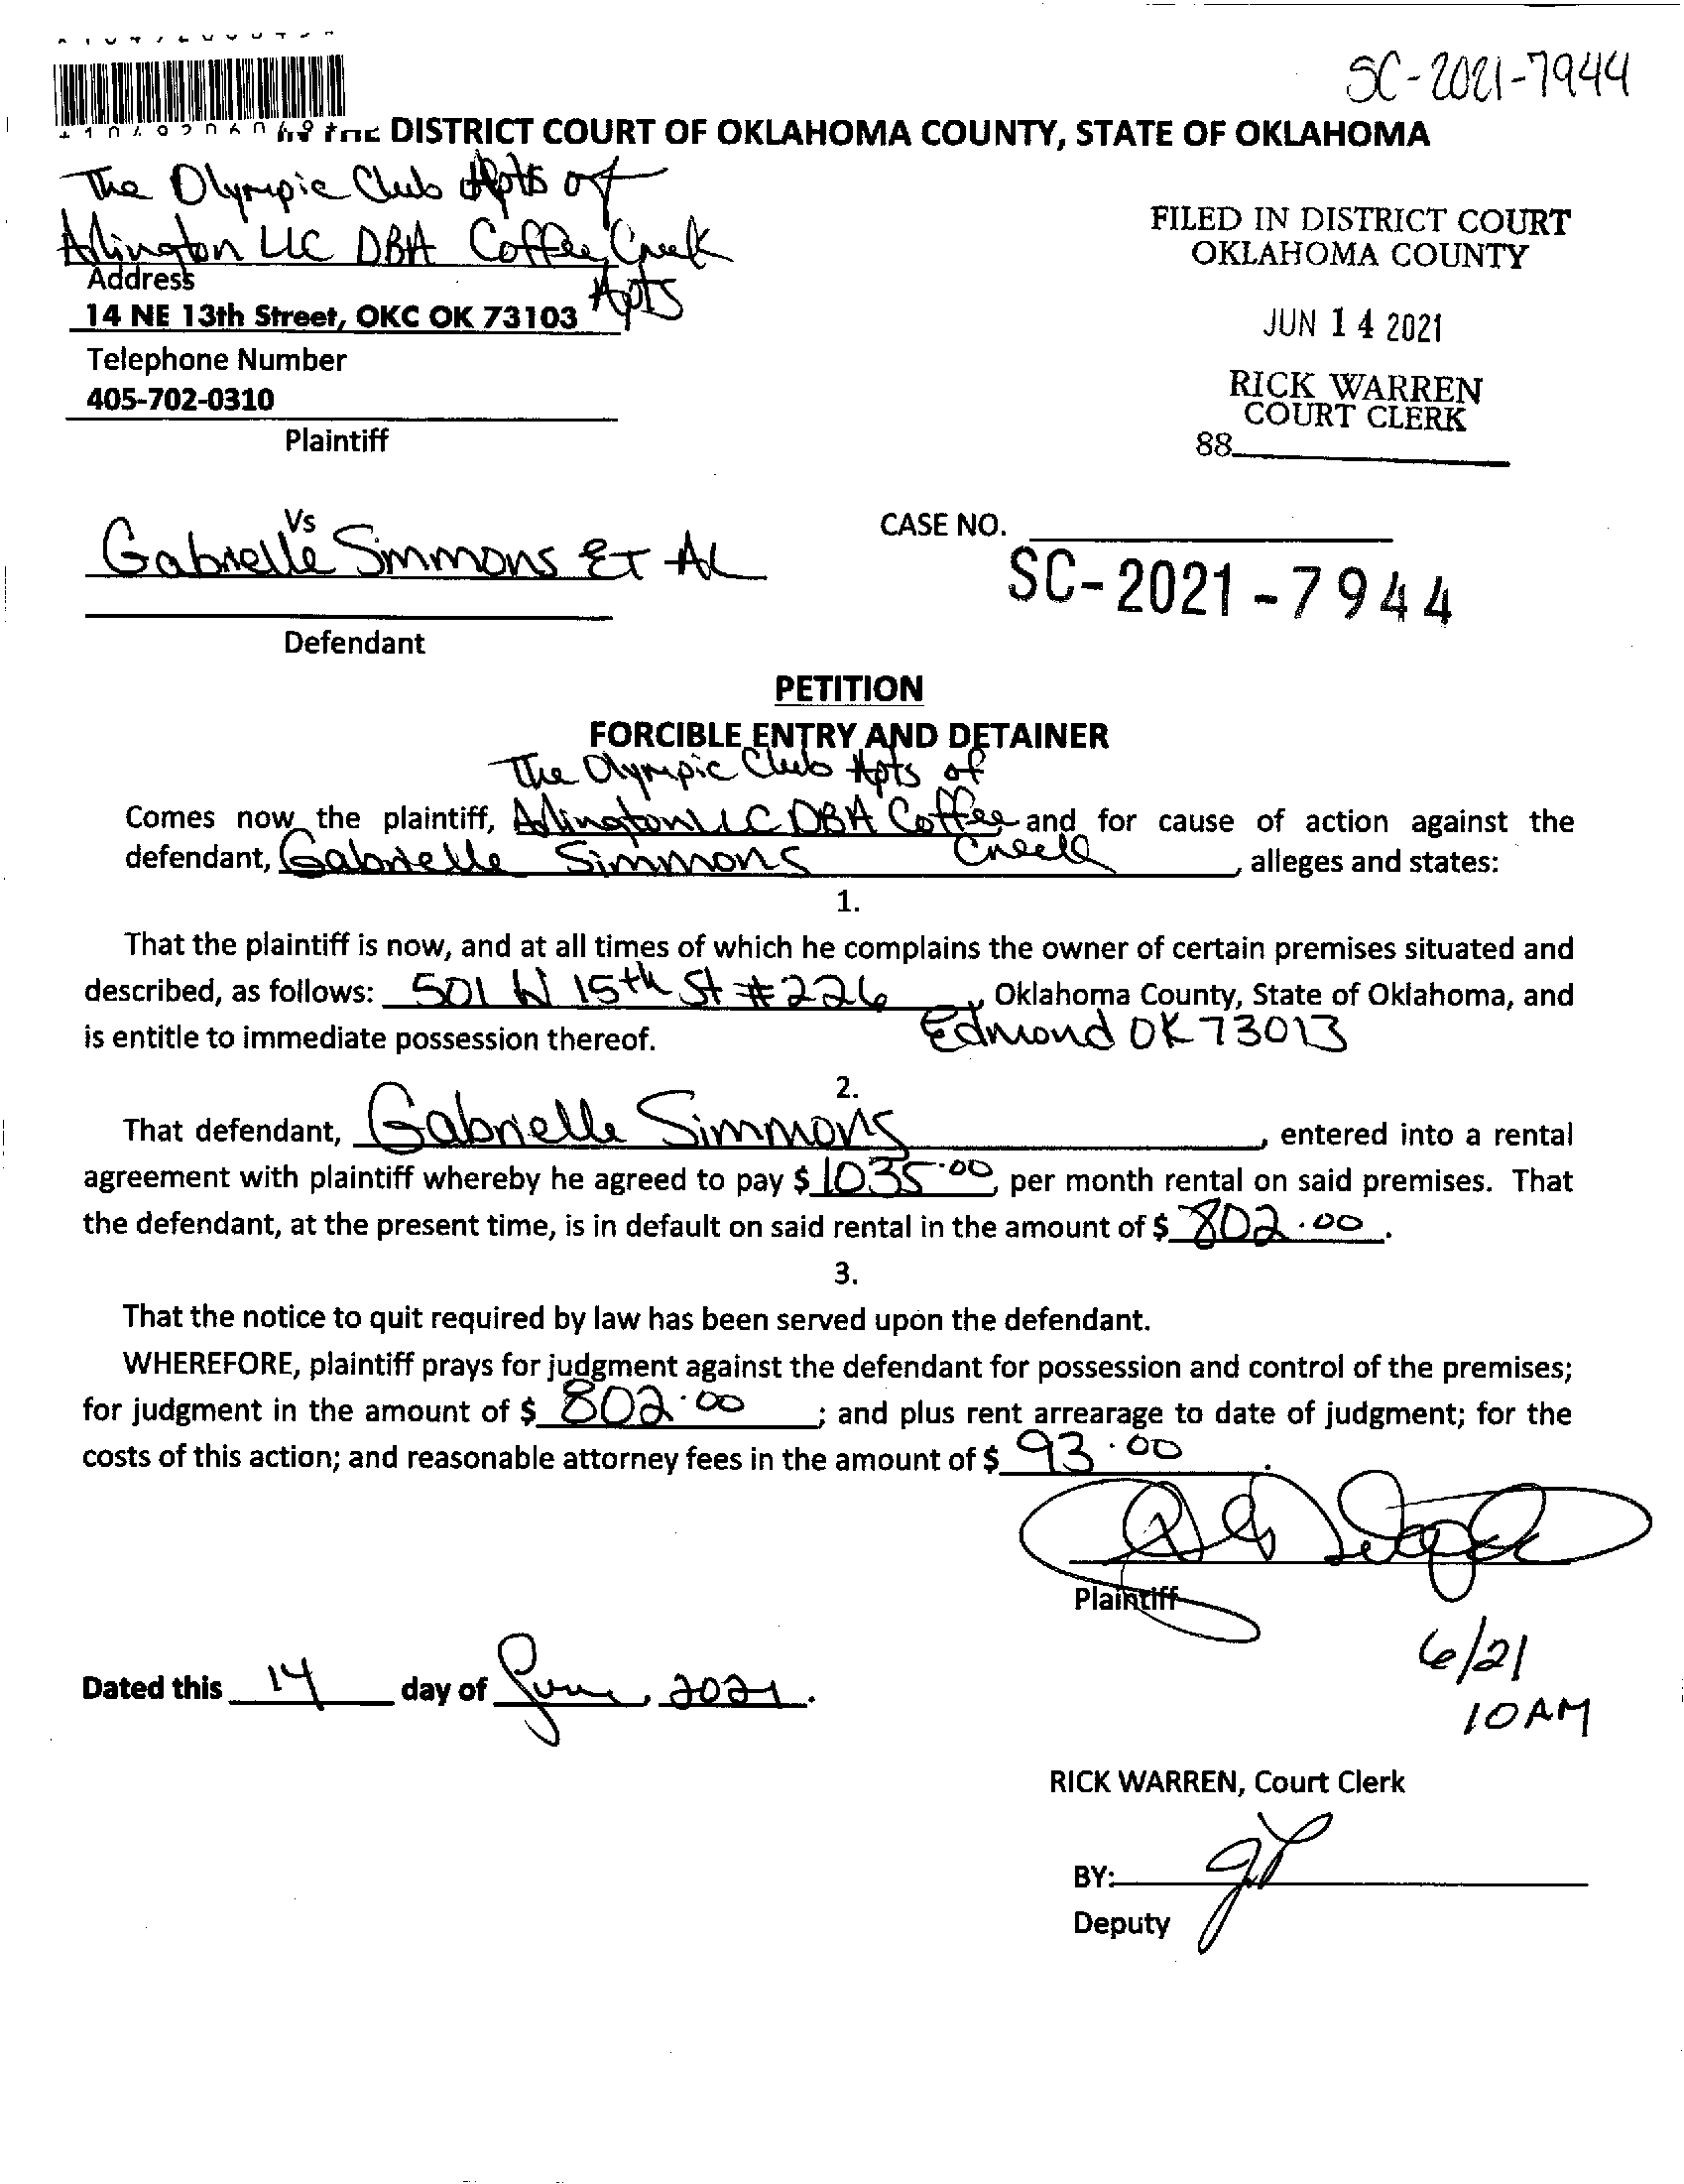 SC-2021-7944
DISTRICT COURT OF OKLAHOMA COUNTY, STATE OF OKLAHOMA
The Olympic Club Apts of
Arlington LLC DBA Coffee Creek
Apts
Address
14 NE 13th Street, OKC OK 73103
Telephone Number
405-702-0310
Plaintiff
FILED IN DISTRICT COURT
OKLAHOMA COUNTY
JUN 14 2021
RICK WARREN
COURT CLERK
88
Vs
Gabrielle Simmons ET AL
Defendant
CASE NO.
SC-2021-7944
PETITION
FORCIBLE ENTRY AND DETAINER
The Olympic Club Apts of
Comes now the plaintiff, Arlington LLC DBA Coffee and for cause of action against the
Creek
defendant, Gabrielle Simmons, alleges and states:
1.
That the plaintiff is now, and at all times of which he complains the owner of certain premises situated and
described, as follows: 501 W 15th St #226, Oklahoma County, State of Oklahoma, and
Edmond OK 73013
is entitle to immediate possession thereof.
2.
That defendant, Gabrielle Simmons, entered into a rental
agreement with plaintiff whereby he agreed to pay $ 1035.00, per month rental on said premises. That
the defendant, at the present time, is in default on said rental in the amount of $ 802.00.
3.
That the notice to quit required by law has been served upon the defendant.
WHEREFORE, plaintiff prays for judgment against the defendant for possession and control of the premises;
for judgment in the amount of $ 802.00; and plus rent arrearage to date of judgment; for the
costs of this action; and reasonable attorney fees in the amount of $ 93.00.
Plaintiff
6/21
10 AM
Dated this 14 day of June, 2021.
RICK WARREN, Court Clerk
BY:
Deputy